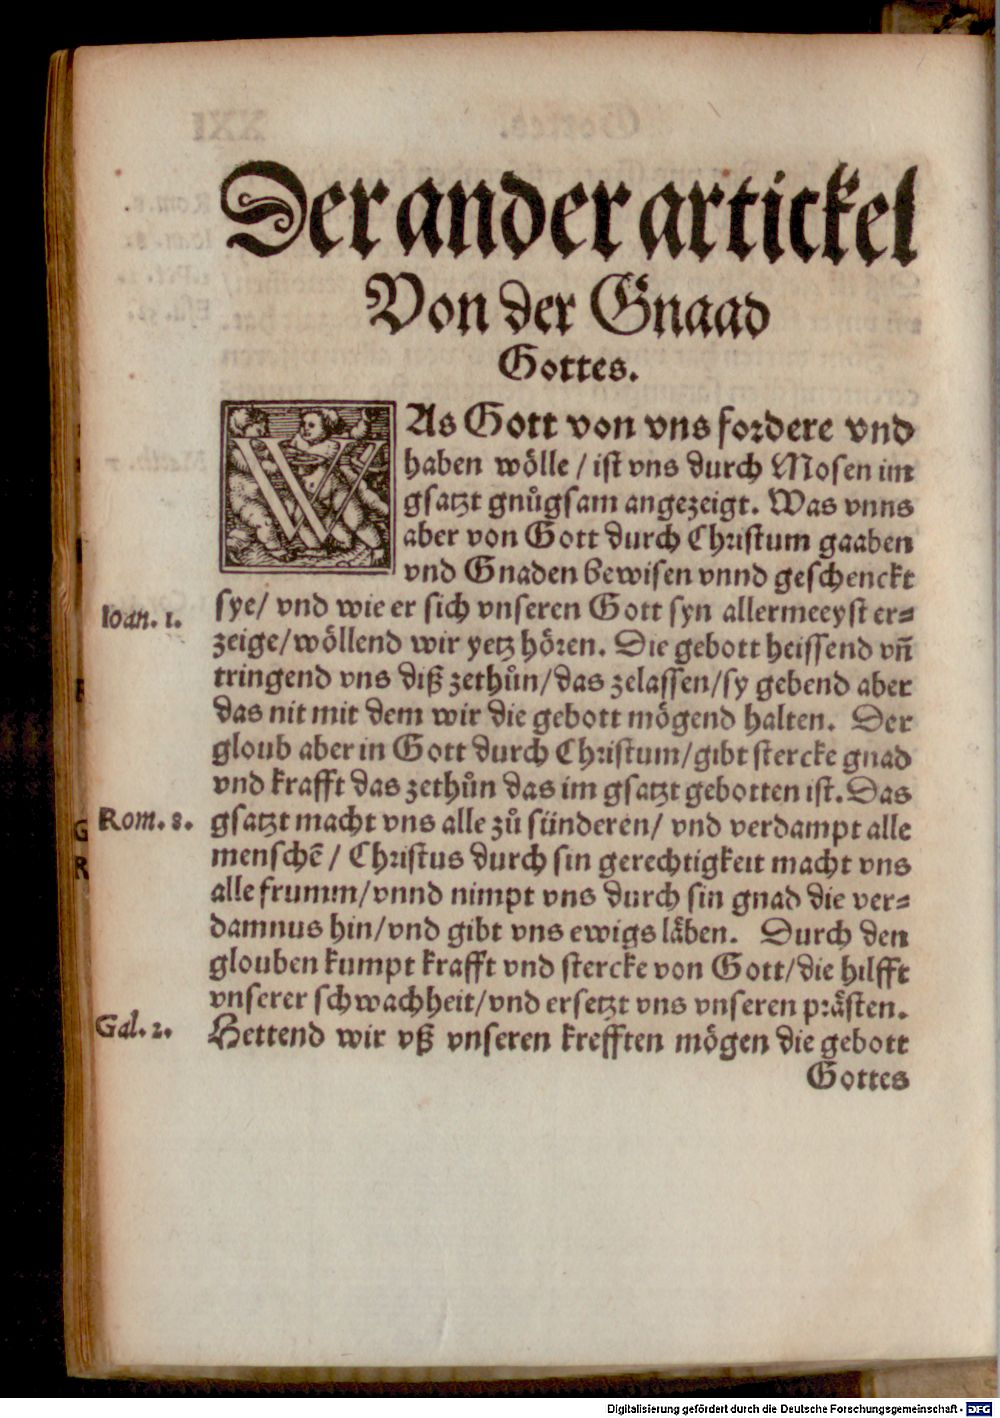 Der ander artickel
Von der Gnaad
Gottes.
WAs Gott von vns fordere vnd
haben wölle / ist vns durch Mosen im
gsatzt gnůgsam angezeigt. Was vnns
aber von Gott durch Christum gaaben
vnd Gnaden bewisen vnnd geschenckt
Ioan. 1.
sye/ vnd wie er sich vnseren Gott syn allermeeyst er⸗
zeige/wöllend wir yetz hören. Die gebott heissend vñ
tringend vns diß zethůn/das zelassen/sy gebend aber
das nit mit dem wir die gebott mögend halten. Der
gloub aber in Gott durch Christum/gibt stercke gnad
vnd krafft das zethůn das im gsatzt gebotten ist. Das
Rom. 8.
gsatzt macht vns alle zů sünderen/ vnd verdampt alle
menschē / Christus durch sin gerechtigkeit macht vns
alle frumm/vnnd nimpt vns durch sin gnad die ver⸗
damnus hin/vnd gibt vns ewigs läben. Durch den
glouben kumpt krafft vnd stercke von Gott/die hilfft
vnserer schwachheit/vnd ersetzt vns vnseren prästen.
Gal. 2.
Hettend wir vß vnseren krefften mögen die gebott
Gottes
Digitalisierung gefördert durch die Deutsche Forschungsgemeinschaft - DFG